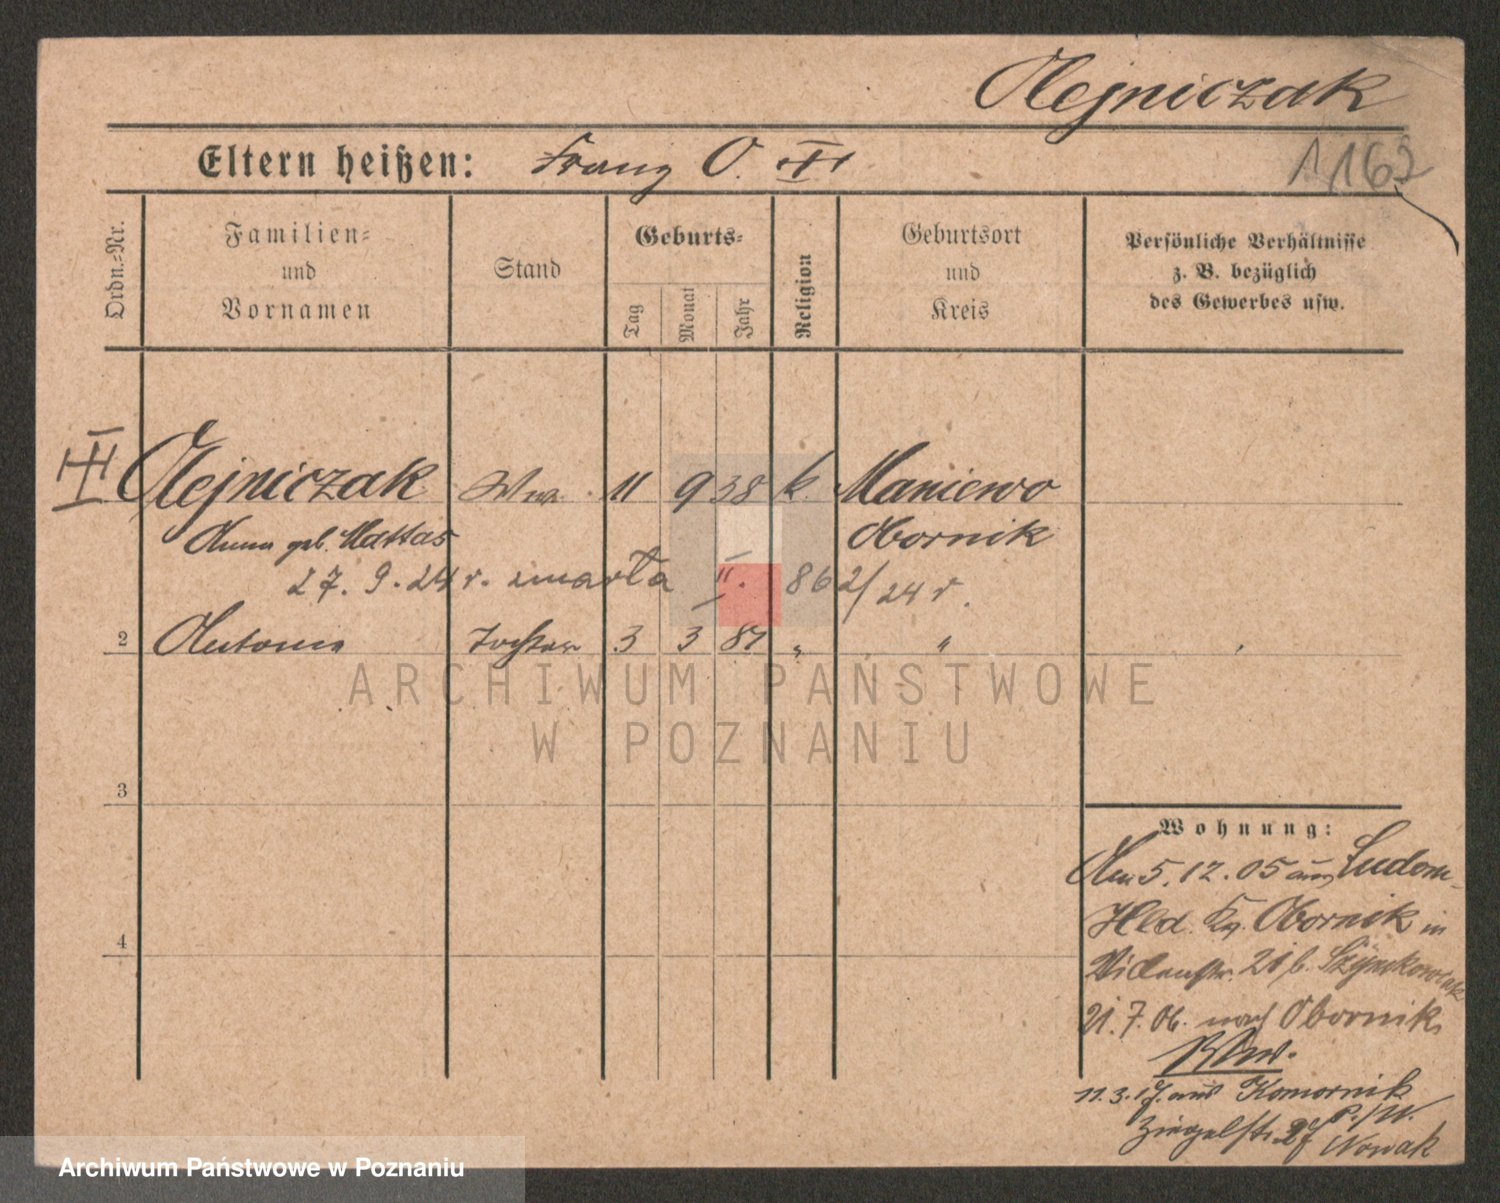 Olejniczak
Eltern heißen: Franz O.
1163
Ordn.-Nr.
Familien-
und
Vornamen
Stand
Geburts-
Tag
Monat
Jahr
Religion
Geburtsort
und
Kreis
Persönliche Verhältnisse
z. B. bezüglich
des Gewerbes usw.
Olejniczak Ww. 11 9 38 k. Maniewo
Anna geb. Mattas Obornik
27. 9. 24 r. zmarła II. 862/24 r.
2 Antonie Tochter 3 3 87 " "
ARCHIWUM PAŃSTWOWE
W POZNANIU
3
4
Wohnung:
Am 5. 12. 05 aus Ludom-
Hld. Kr. Obornik in
21 b. Szymkowiak
21. 7. 06. nach Obornik
11. 3. 17. aus Komornik
P./W.
Ziegelstr. Nowak
Archiwum Państwowe w Poznaniu